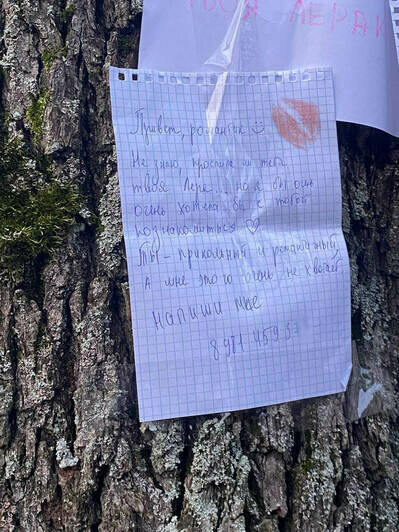 ТВОЯ ЛЕРАК
Привет, романтик
Не знаю, простила ли тебя
твоя Лера... но я бы очень
очень хотела бы с тобой
познакомиться ♡
Ты - прикольный и романтичный
А мне этого очень не хватает
НАПИШИ МНЕ